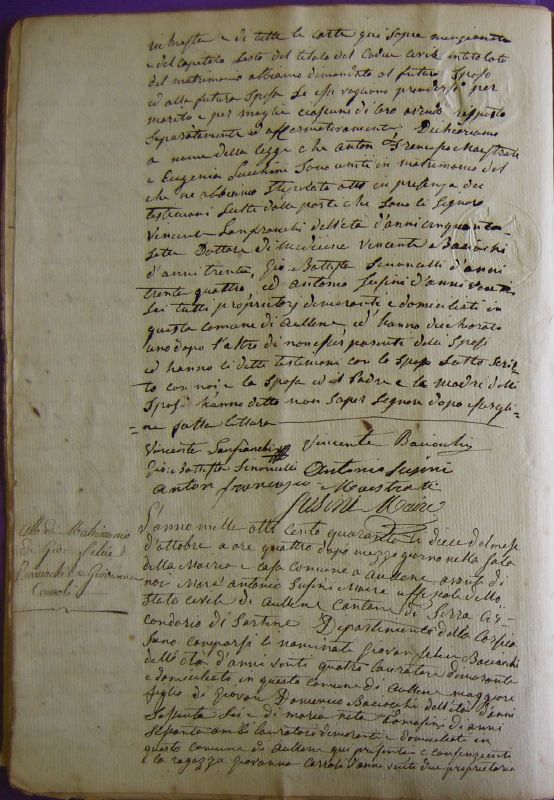 di tutte le carte qui sopra menzionate
e del capitolo sesto del titolo del Codice civile intitolato
del matrimonio abbiamo dimandato al futuro sposo
ed alla futura sposa se essi vogliono prendersi per
marito e per moglie ciascuni di loro avendo risposto
separatamente ed affermativamente Dichiariamo
a nome della legge che anton Francesco Maestrati
e Eugenia Lucchini sono uniti in matrimonio del
che ne abbiamo atto in presenza dei
testimoni dalle parti che sono li Signori
Vincente Lanfranchi dell'età d'anni cinquanta
sette Dottore di medicina Vincente Bacciochi
d'anni trenta, Gio: Battista Simoncelli d'anni
trenta quattro, ed Antonio Susini d'anni
sei tutti proprietarj dimoranti e domiciliati in
questa comune di Aullene, ed hanno dichiarato
uno dopo l'altro di non esser parenti delli Sposi
ed hanno li detti testimoni con lo Sposo sotto scrit-
to con noi e la Sposa ed il Padre e la madre delli
Sposi hanno detto non saper segnare dopo
ne fatta lettura
Vincente Lanfranchi Vincente Bacciochi
Gio: Battista Simoncelli Antonio Susini
Anton francesco Maestrati
Susini Maire
Atto di Matrimonio
di Gio: Felice
Bacciochi e Giovanna
L'anno mille otto cento quaranta li dieci del mese
d'ottobre a ore quattro dopo mezzo giorno nella sala
della Maeria e casa comune a Aullene avanti di
noi Maire antonio Susini Maire uffiziale dello
stato civile di Aullene Cantone di Serra Cir-
condario di Sartene Dipartimento della Corsica
sono comparsi li nominati giovan felice Bacciochi
dell'età d'anni venti quatro lavoratore dimorante
e domiciliato in questa comune di Aullene maggiore
figlio di giovan Domenico Bacciochi dell'età d'anni
sessanta sei e di maria nata Tomasini di anni
sessanta ambi lavoratori dimoranti e domiciliati in
questa comune di aullene qui presenti e consenzienti
e la ragazza giovanna d'anni venti due proprietaria